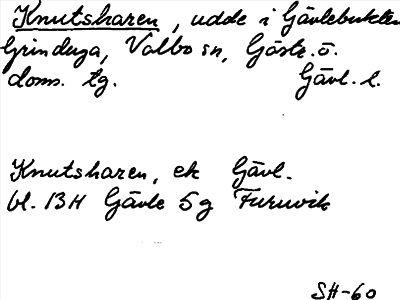 Knutsharen, udde i Gävlebukten
Grinduga, Valbo sn, Gästr. ö.
doms. tg. Gävl. l.
Knutsharen, ek Gävl.
bl. 13H Gävle 5g Furuvik
SH-60